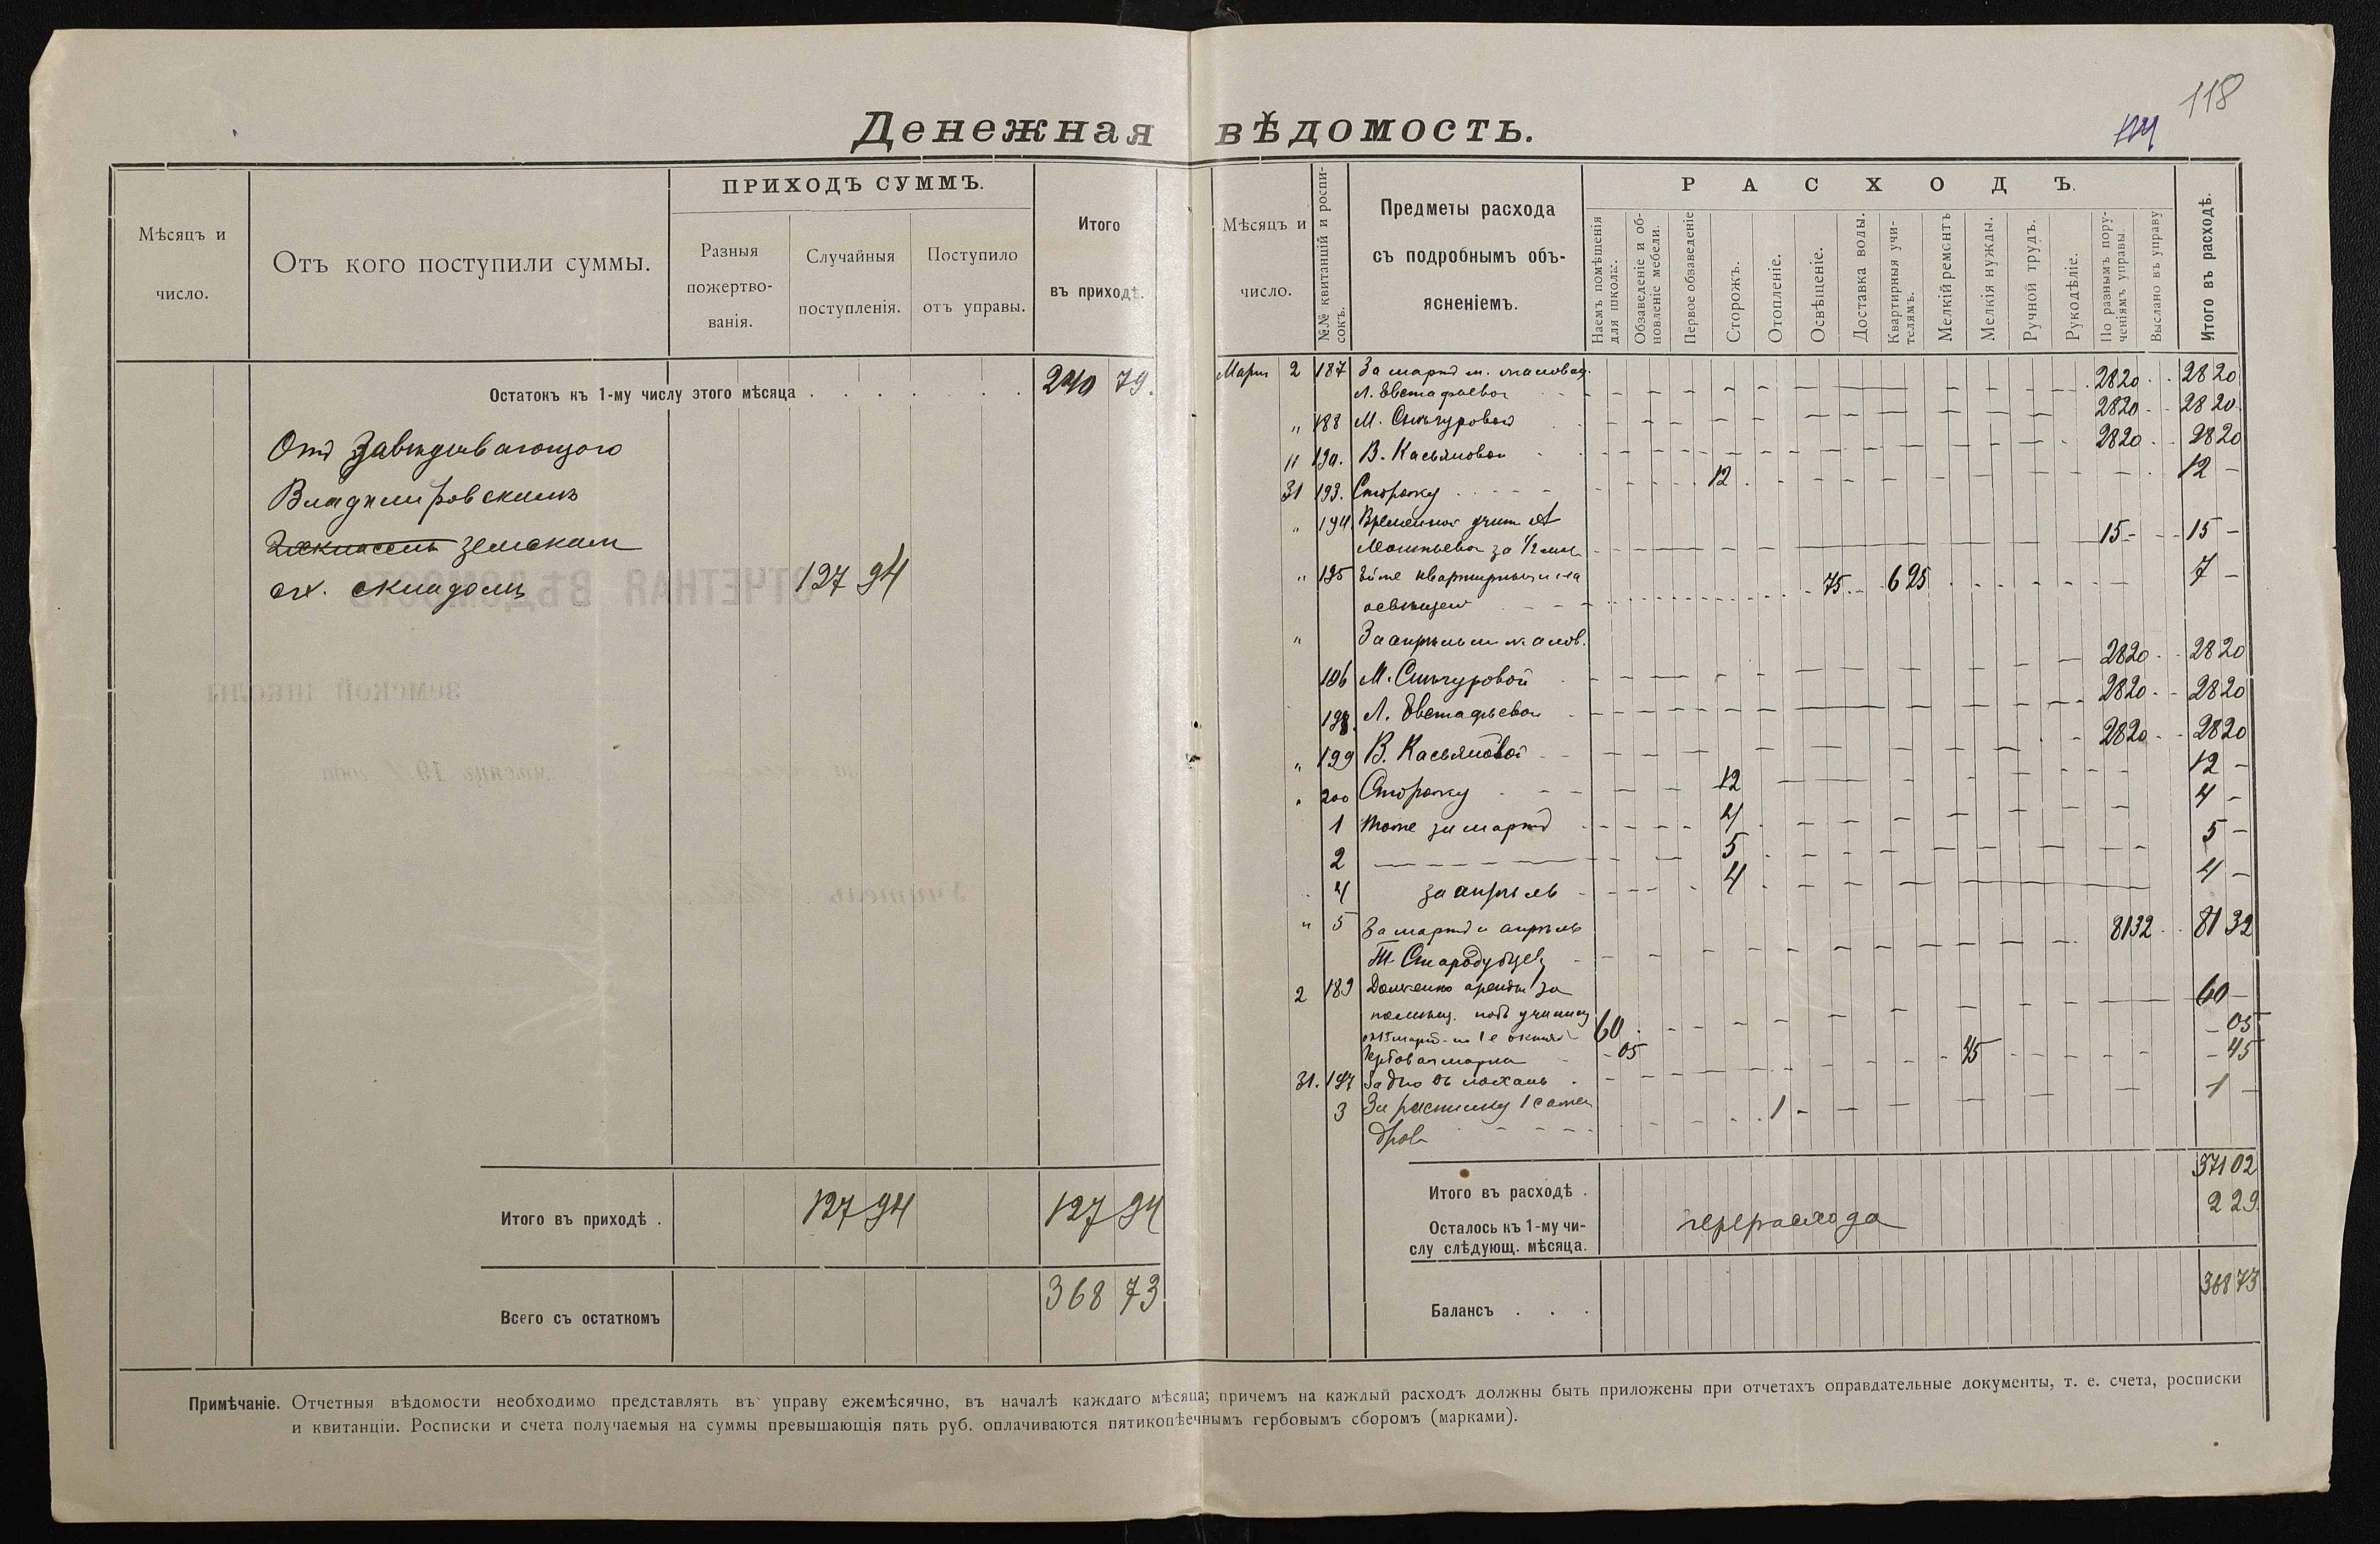 118
Денежная вѣдомость.
Мѣсяцъ и
число.
Отъ кого поступили суммы.
ПРИХОДЪ СУММЪ.
Разныя
пожертво-
ванія.
Случайныя
поступленія.
Поступило
отъ управы.
Итого
въ приходѣ.
Остатокъ къ 1-му числу этого мѣсяца
240 79.
Отъ Завѣдывающаго
Владимировскимъ
земскимъ
складомъ
127 94
Итого въ приходѣ .
127 94
127 94
Всего съ остаткомъ
368 73
Мѣсяцъ и
число.
№№ квитанцій и роспи-
сокъ.
Предметы расхода
съ подробнымъ объ-
ясненіемъ.
РАСХОДЪ.
Наемъ помѣщенія
для школы.
Обзаведеніе и об-
новленіе мебели.
Первое обзаведеніе
Сторожъ.
Отопленіе.
Освѣщеніе.
Доставка воды.
Квартирныя учи-
телямъ.
Мелкій ремонтъ
Мелкія нужды.
Ручной трудъ.
Рукодѣліе.
По разнымъ пору-
ченіямъ управы
Выслано въ управу
Итого въ расходѣ.
Мартъ 2 187 За мартъ м. жалован.
Л. Евстафьевой 2820 2820
" 188 М. Снѣгуровой 2820 2820
" 190. В. Касьяновой 2820 2820
31 193. Сторожу 12 12 –
" 194 Временной учит.
за 1/2 мѣс. 15 – 15 –
" 195 квартирныхъ и на
освѣщен 75 6 25 7 –
" За апрѣль м. жалов.
196 М. Снѣгуровой 2820 2820
198. Л. Евстафьевой 2820 2820
" 199 В. Касьяновой 2820 2820
" 200 Сторожу 12 12 –
1 Тоже за мартъ 4 4 –
2 5 5 –
4 за апрѣль 4 4 –
" 5 За мартъ и апрѣль
Т. Стародубцев 8132 81 32
2 189 аренды за
помѣщ. подъ училищ
60 60 –
Гербовая марка 05 05
31. 197 45 45
3 За распилку 1 сажен
дровъ 1 – 1 –
Итого въ расходѣ .
371 02
Осталось къ 1-му чи-
слу слѣдующ. мѣсяца.
перерасхода
2 29.
Балансъ . . .
368 73
Примѣчаніе. Отчетныя вѣдомости необходимо представлять въ управу ежемѣсячно, въ началѣ каждаго мѣсяца; причемъ на каждый расходъ должны быть приложены при отчетахъ оправдательные документы, т. е. счета, росписки
и квитанціи. Росписки и счета получаемыя на суммы превышающія пять руб. оплачиваются пятикопѣечнымъ гербовымъ сборомъ (марками).